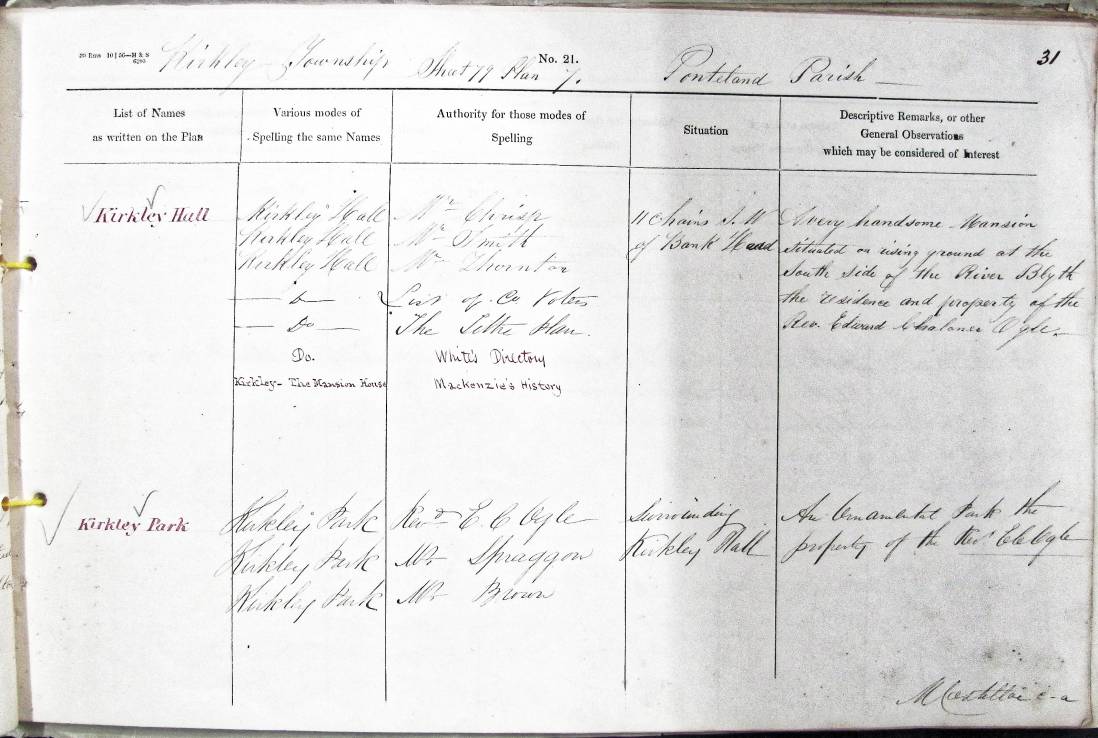 Kirkley Township Sheet 79 Plan 7. No. 21. Ponteland Parish 31
List of Names as written on the Plan
Various modes of Spelling the same Names
Authority for those modes of Spelling
Situation
Descriptive Remarks, or other General Observations which may be considered of Interest
Kirkley Hall
Kirkley Hall Mr Chrisp
Kirkley Hall Mr Smith
Kirkley Hall Mr Thornton
Do List of Co Voters
Do The Tithe Plan.
Do. White's Directory
Kirkley - The Mansion House Mackenzie's History
11 Chains S.W
of Bank Head
A very handsome Mansion
situated on rising ground at the
South side of the River Blyth
the residence and property of the
Rev. Edward Chaloner Ogle.
Kirkley Park
Kirkley Park Revd E. C Ogle
Kirkley Park Mr Spraggon
Kirkley Park Mr Brown
Surrounding
Kirkley Hall
An Ornamental Park the
property of the Revd E C Ogle